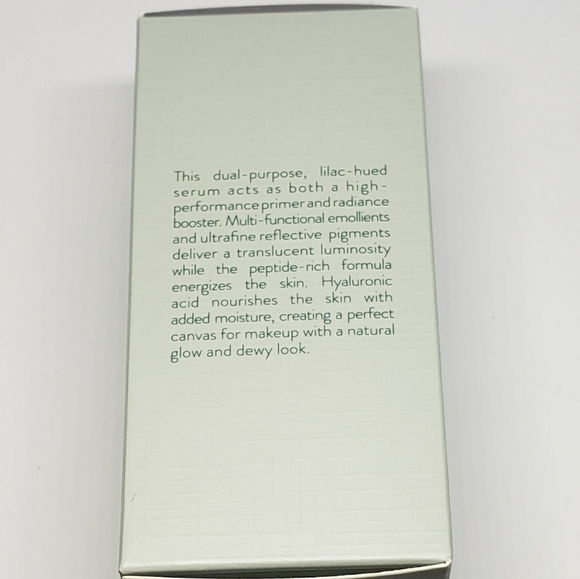 This dual-purpose, lilac-hued
serum acts as both a high-
performance primer and radiance
booster. Multi-functional emollients
and ultrafine reflective pigments
deliver a translucent luminosity
while the peptide-rich formula
energizes the skin. Hyaluronic
acid nourishes the skin with
added moisture, creating a perfect
canvas for makeup with a natural
glow and dewy look.